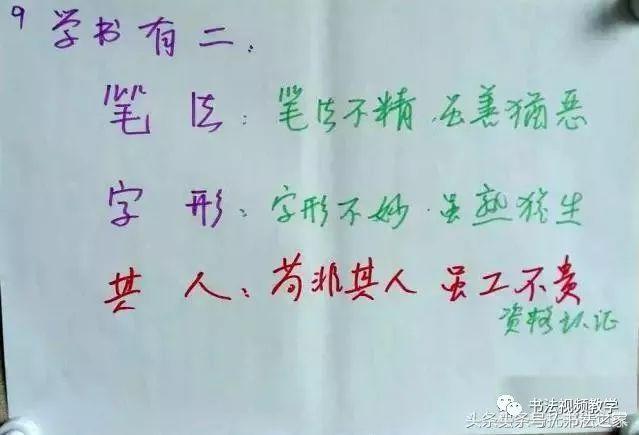 9 学书有二：
笔法：笔法不精 虽善犹恶
字形：字形不妙 虽熟犹生
其人：苟非其人 虽工不贵
资格认证
书法视频教学
头条号
书法之家